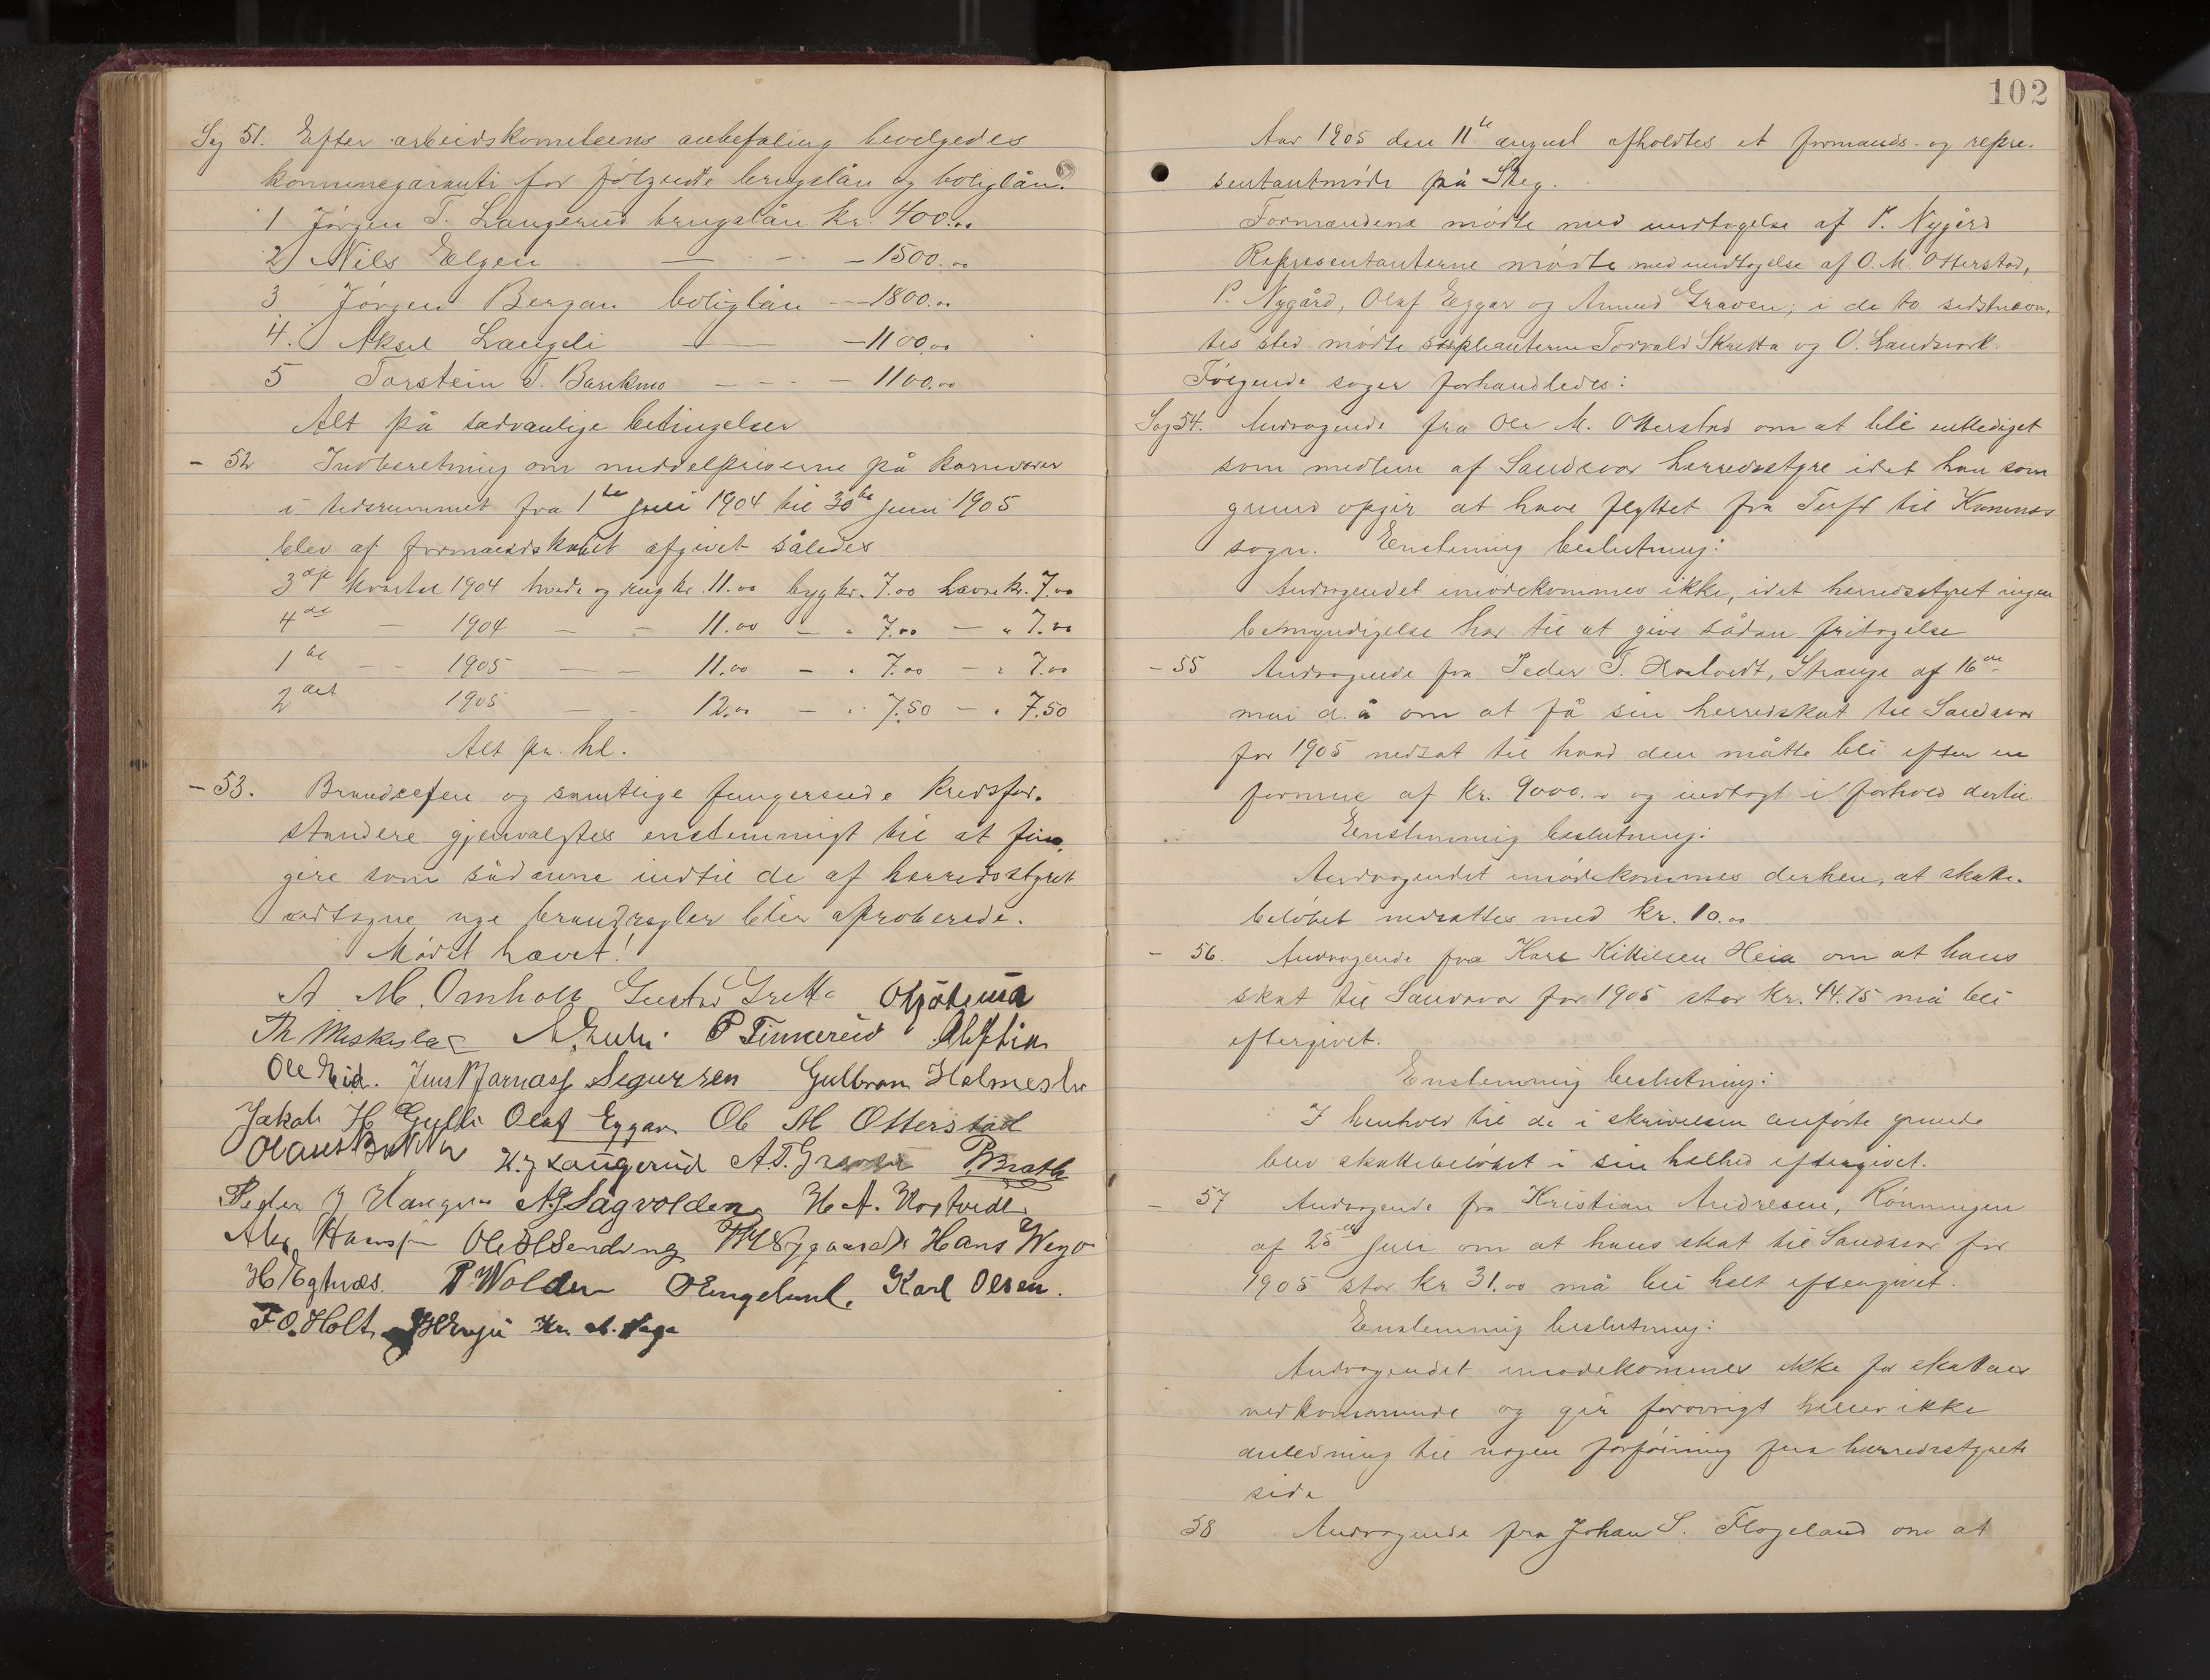 Sag 51. Efter arbeidskomiteens anbefaling bevilgedes
kommunegaranti for følgende brugslån og boliglån.
1 Jørgen T. Langerud brugslån kr. 400.00
2) Nils Elgen — - - - 1500.00
3 Jørgen Bergan boliglån - - 1800.00
4. Aksel Langeli — — - 1100.00
5 Torstein T. Barekmo - - - - 1100.00
Alt på sædvanlige betingelser
- 52 Indberetning om middelpriserne på kornvarer
i tidsrummet fra 1te juli 1904 til 30te juni 1905
blev af formandskabet afgivet således
3dje kvartal 1904 hvede og rug kr. 11.00 byg kr. 7.00 havre kr. 7.00
4de — 1904 — - 11.00 — " 7.00 — " 7.00
1te - - 1905 — - 11.00 - " 7.00 - " 7.00
2det 1905 — - 12.00 - " 7.50 - " 7.50
Alt pr. hl.
- 53. Brandsefen og samtlige fungerende kredsfor-
standere gjenvalgtes enstemmigt til at fun-
gere som sådanne indtil de af herredsstyret
vedtagne nye brandregler blir aproberede.
Mødet hævet!
A. M. Omholt Gustav Grette
P Tinnerud
Ole Eid. Jens Segursen Gulbran Holmeslet
Jakob H Gylli Olaf Eggar Ole M Otterstad
H. J Langerud A. T. Graven P. Bratli
Peder J Haugen A. J Sagvolden H. A. Hostvedt
Ole O Sending Hans Wego
P. Wolden O Engelund. Karl Olsen.
F. O. Holt Kr. A. Haga
102
Aar 1905 den 11te august afholdtes et formands- og repre-
sentantmøde på Skeg.
Formændene mødte med undtagelse af P. Nygård
Representanterne mødte med undtagelse af O. M. Otterstad,
P. Nygård, Olaf Eggar og Amund Graven; i de to sidstnævn-
tes sted mødte suppleanterne Torvald Skretta og O. Landsverk.
Følgende sager forhandledes:
Sag 54. Andragende fra Ole M. Otterstad om at bli entlediget
som medlem af Sandsvær herredsstyre idet han som
grund opgir at have flyttet fra Tuft til Komnes
sogn. Enstemmig beslutning:
Andragendet imødekommes ikke, idet herredsstyret ingen
bemyndigelse har til at give sådan fritagelse
- 55 Andragende fra Peder T. Hostvedt, Stranga af 16de
mai d. å om at få sin herredskat til Sandsvær
for 1905 nedsat til hvad den måtte bli efter en
formue af kr. 9000.- og indtægt i forhold dertil.
Enstemmig beslutning:
Andragendet imødekommes derhen, at skatte-
beløbet nedsættes med kr. 10.00
- 56. Andragende fra Karl Kittilsen Heia om at hans
skat til Sandsvær for 1905 stor kr. 44.75 må bli
eftergivet.
Enstemmig beslutning:
I henhold til de i skrivelsen anførte grunde
blev skattebeløbet i sin helhed eftergivet.
- 57 Andragende fra Kristian Andresen, Rønningen
af 25de juli om at hans skat til Sandsvær for
1905 stor kr 31.00 må bli helt eftergivet.
Enstemmig beslutning:
Andragendet imødekommes ikke for skattens
vedkommende og gir forøvrigt heller ikke
anledning til nogen forføining fra herredsstyrets
side
58 Andragende fra Johan S. Flageland om at